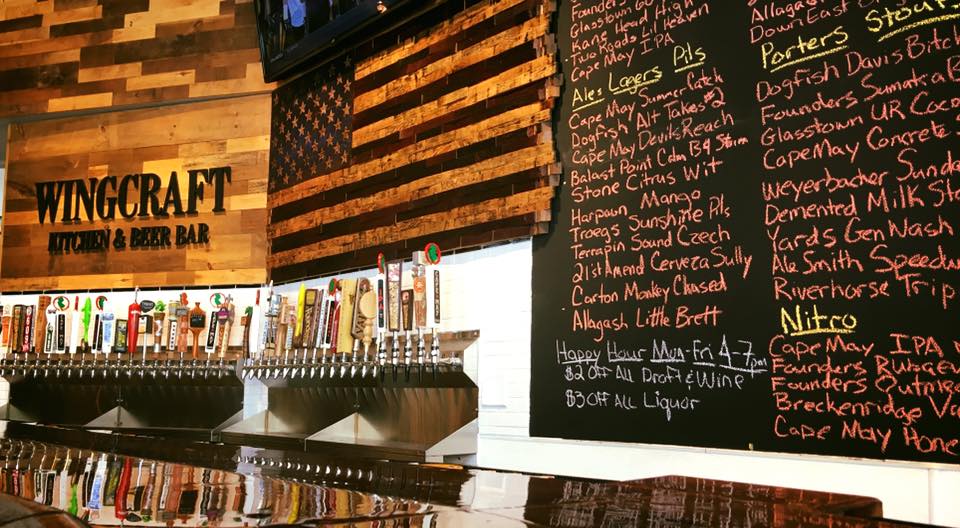 WINGCRAFT
KITCHEN & BEER BAR
Founders
Glasstown
Kane Head High
Two Roads Lil Heaven
Cape May IPA
Ales Lagers Pils
Cape May Summer Catch
Dogfish Alt Takes #2
Cape May Devils Reach
Balast Point Calm B4 Storm
Stone Citrus Wit
Harpoon Mango
Troegs Sunshine Pils
Terrapin Sound Czech
21st Amend Cerveza Sully
Carton Monkey Chased
Allagash Little Brett
Happy Hour Mon-Fri 4-7pm
$2 Off All Draft & Wine
$3 Off All Liquor
Allagash
Down East
Porters Stouts
Dogfish Davis Bitch
Founders Sumatra B
Glasstown UR Coco
Cape May Concrete
Weyerbacher Sunda
Demented Milk Sto
Yards Gen Wash
Ale Smith Speedw
Riverhorse Trip
Nitro
Cape May IPA
Founders
Founders Outm
Breckenridge Va
Cape May Hone